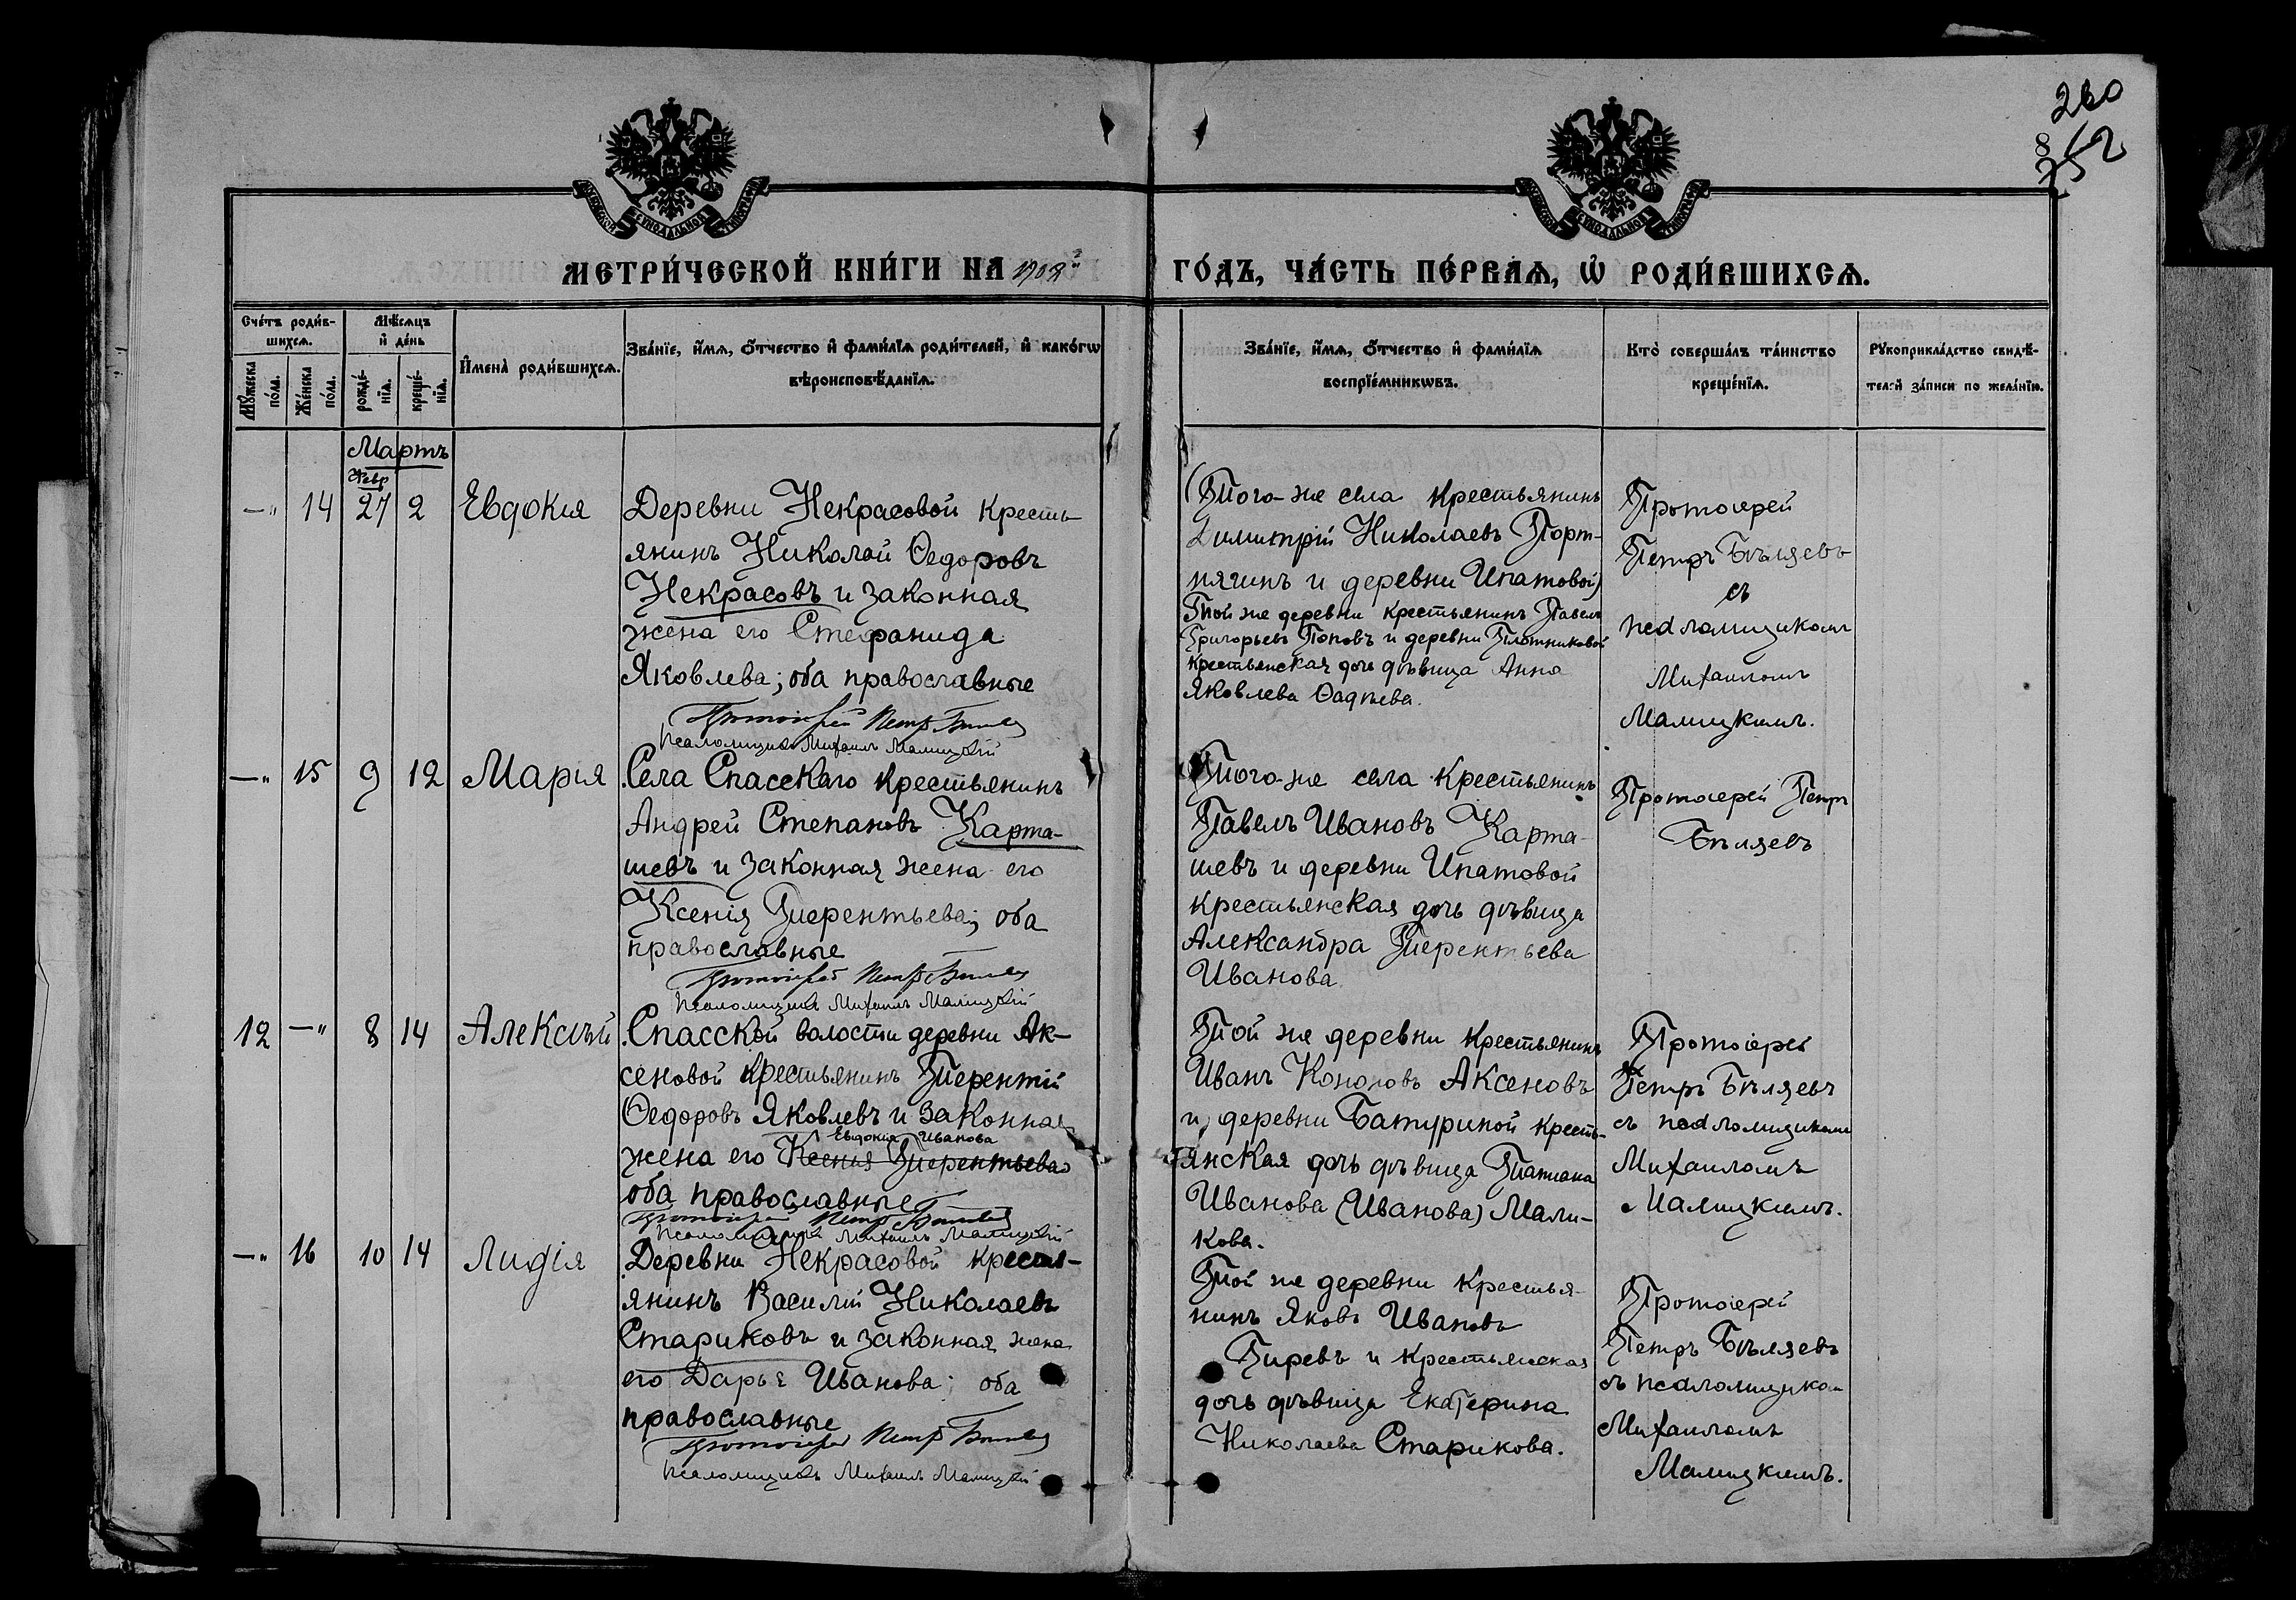 260
8
252
МЕТРИ́ЧЕСКОЙ КНИ́ГИ НА 1908й
ГО́ДЪ, ЧА́СТЬ ПЕ́РВАѦ, Ѡ҆ РОДИ́ВШИХСѦ.
Сче́тъ роди́в-
шихсѧ.
Мꙋ́жеска по́ла.
Же́нска по́ла.
Мѣ́сѧцъ
и҆ де́нь
рожде́-
нїѧ.
креще́-
нїѧ.
И҆мена̀ роди́вшихсѧ.
Зва́нїе, и҆́мѧ, ѻ҆́тчество и҆ фами́лїѧ роди́телей, и҆ како́гѡ
вѣроисповѣ́данїѧ.
Зва́нїе, и҆́мѧ, ѻ҆́тчество и҆ фами́лїѧ
воспрїе́мникѡвъ.
Кто̀ соверша́лъ та́инство
креще́нїѧ.
Рꙋкоприкла́дство свидѣ́-
телей за́писи по жела́нїю.
Мартъ
Февр
—„ 14 27 2 Евдокия
Деревни Некрасовой кресть-
янинъ Николай Ѳедоровъ
Некрасовъ и законная
жена его Стефанида
Яковлева; оба православные
Протоіерей Петръ Бѣляевъ
Псаломщикъ Михаилъ Малицкій
(Того-же села крестьянинъ
Димитрій Николаевъ Порт-
нягинъ и деревни Ипатовой)
Той же деревни крестьянинъ Павелъ
Григорьевъ Поповъ и деревни Плотниковой
крестьянская дочь дѣвица Анна
Яковлева Ѳадѣева.
Протоіерей
Петръ Бѣляевъ
съ
псаломщикомъ
Михаиломъ
Малицкимъ.
—„ 15 9 12 Марія
Села Спасскаго крестьянинъ
Андрей Степановъ Карта-
шевъ и законная жена его
Ксенія Терентьева; оба
православные
Протоіерей Петръ Бѣляевъ
Псаломщикъ Михаилъ Малицкій
Того-же села крестьянинъ
Павелъ Ивановъ Карта-
шевъ и деревни Ипатовой
крестьянская дочь дѣвица
Александра Терентьева
Иванова
Протоіерей Петръ
Бѣляевъ
12 —„ 8 14 Алексѣй
Спасской волости деревни Ак-
сеновой крестьянинъ Терентій
Ѳедоровъ Яковлевъ и законная
Евдокія Иванова
жена его Ксенія Терентьева
оба православные
Протоіерей Петръ Бѣляевъ
Псаломщикъ Михаилъ Малицкій
Той же деревни крестьянинъ
Иванъ Кононовъ Аксеновъ
и деревни Батуриной кресть-
янская дочь дѣвица Татиана
Иванова (Иванова) Мали-
кова.
Протоіерей
Петръ Бѣляевъ
съ псаломщикомъ
Михаиломъ
Малицкимъ.
—„ 16 10 14 Лидія
Деревни Некрасовой кресть-
янинъ Василій Николаевъ
Стариковъ и законная жена
его Дарья Иванова; оба
православные
Протоіерей Петръ Бѣляевъ
Псаломщикъ Михаилъ Малицкій
Той же деревни крестья-
нинъ Яковъ Ивановъ
Гиревъ и крестьянская
дочь дѣвица Екатерина
Николаева Старикова.
Протоіерей
Петръ Бѣляевъ
съ псаломщикомъ
Михаиломъ
Малицкимъ.